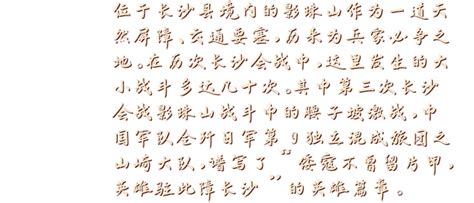 位于长沙县境内的影珠山作为一道天
然屏障、交通要塞,历来为兵家必争之
地。在历次长沙会战中,这里发生的大
小战斗多达几十次。其中第三次长沙
会战影珠山战斗中的腰子坡激战,中
国军队全歼日军第9独立混成旅团之
山崎大队,谱写了“倭寇不曾留片甲,
英雄驻此障长沙”的英雄篇章。